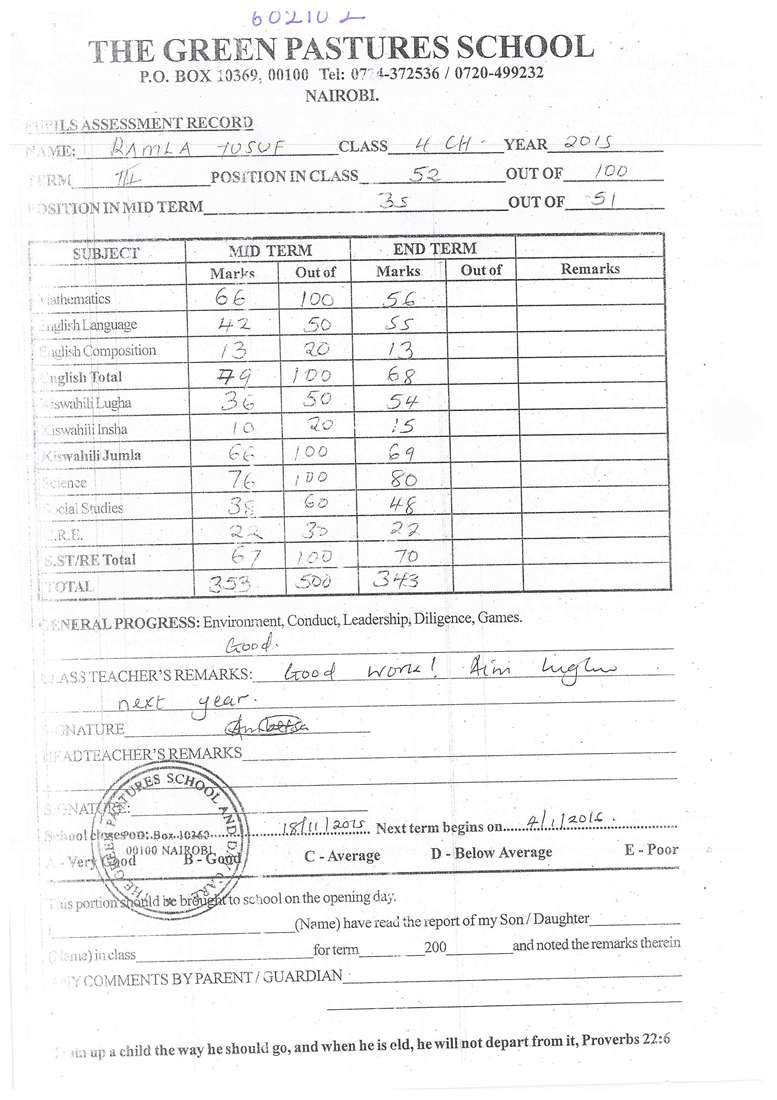 602102
THE GREEN PASTURES SCHOOL
P.O. BOX 10369, 00100 Tel: 07 4-372536 / 0720-499232
NAIROBI.
PUPILS ASSESSMENT RECORD
NAME: RAMLA YUSUF CLASS 4 CH. YEAR 2015
TERM III POSITION IN CLASS 52 OUT OF 100
POSITION IN MID TERM 35 OUT OF 51
SUBJECT MID TERM END TERM
Marks Out of Marks Out of Remarks
Mathematics 66 100 56
English Language 42 50 55
English Composition 13 20 13
English Total 79 100 68
Kiswahili Lugha 36 50 54
Kiswahili Insha 10 20 15
Kiswahili Jumla 66 100 69
Science 76 100 80
Social Studies 38 60 48
R.E. 22 30 22
S.ST/RE Total 67 100 70
TOTAL 353 500 343
GENERAL PROGRESS: Environment, Conduct, Leadership, Diligence, Games.
Good.
CLASS TEACHER'S REMARKS: Good work! Aim higher
next year.
SIGNATURE
HEADTEACHER'S REMARKS
SIGNATURE:
THE GREEN PASTURES SCHOOL AND DAY CARE
P.O. Box 10369
00100 NAIROBI
School closes on: 18/11/2015 Next term begins on 4/1/2016
A - Very Good B - Good C - Average D - Below Average E - Poor
This portion should be brought to school on the opening day.
I (Name) have read the report of my Son / Daughter
(Name) in class for term 200 and noted the remarks therein
ANY COMMENTS BY PARENT / GUARDIAN
Train up a child the way he should go, and when he is old, he will not depart from it, Proverbs 22:6